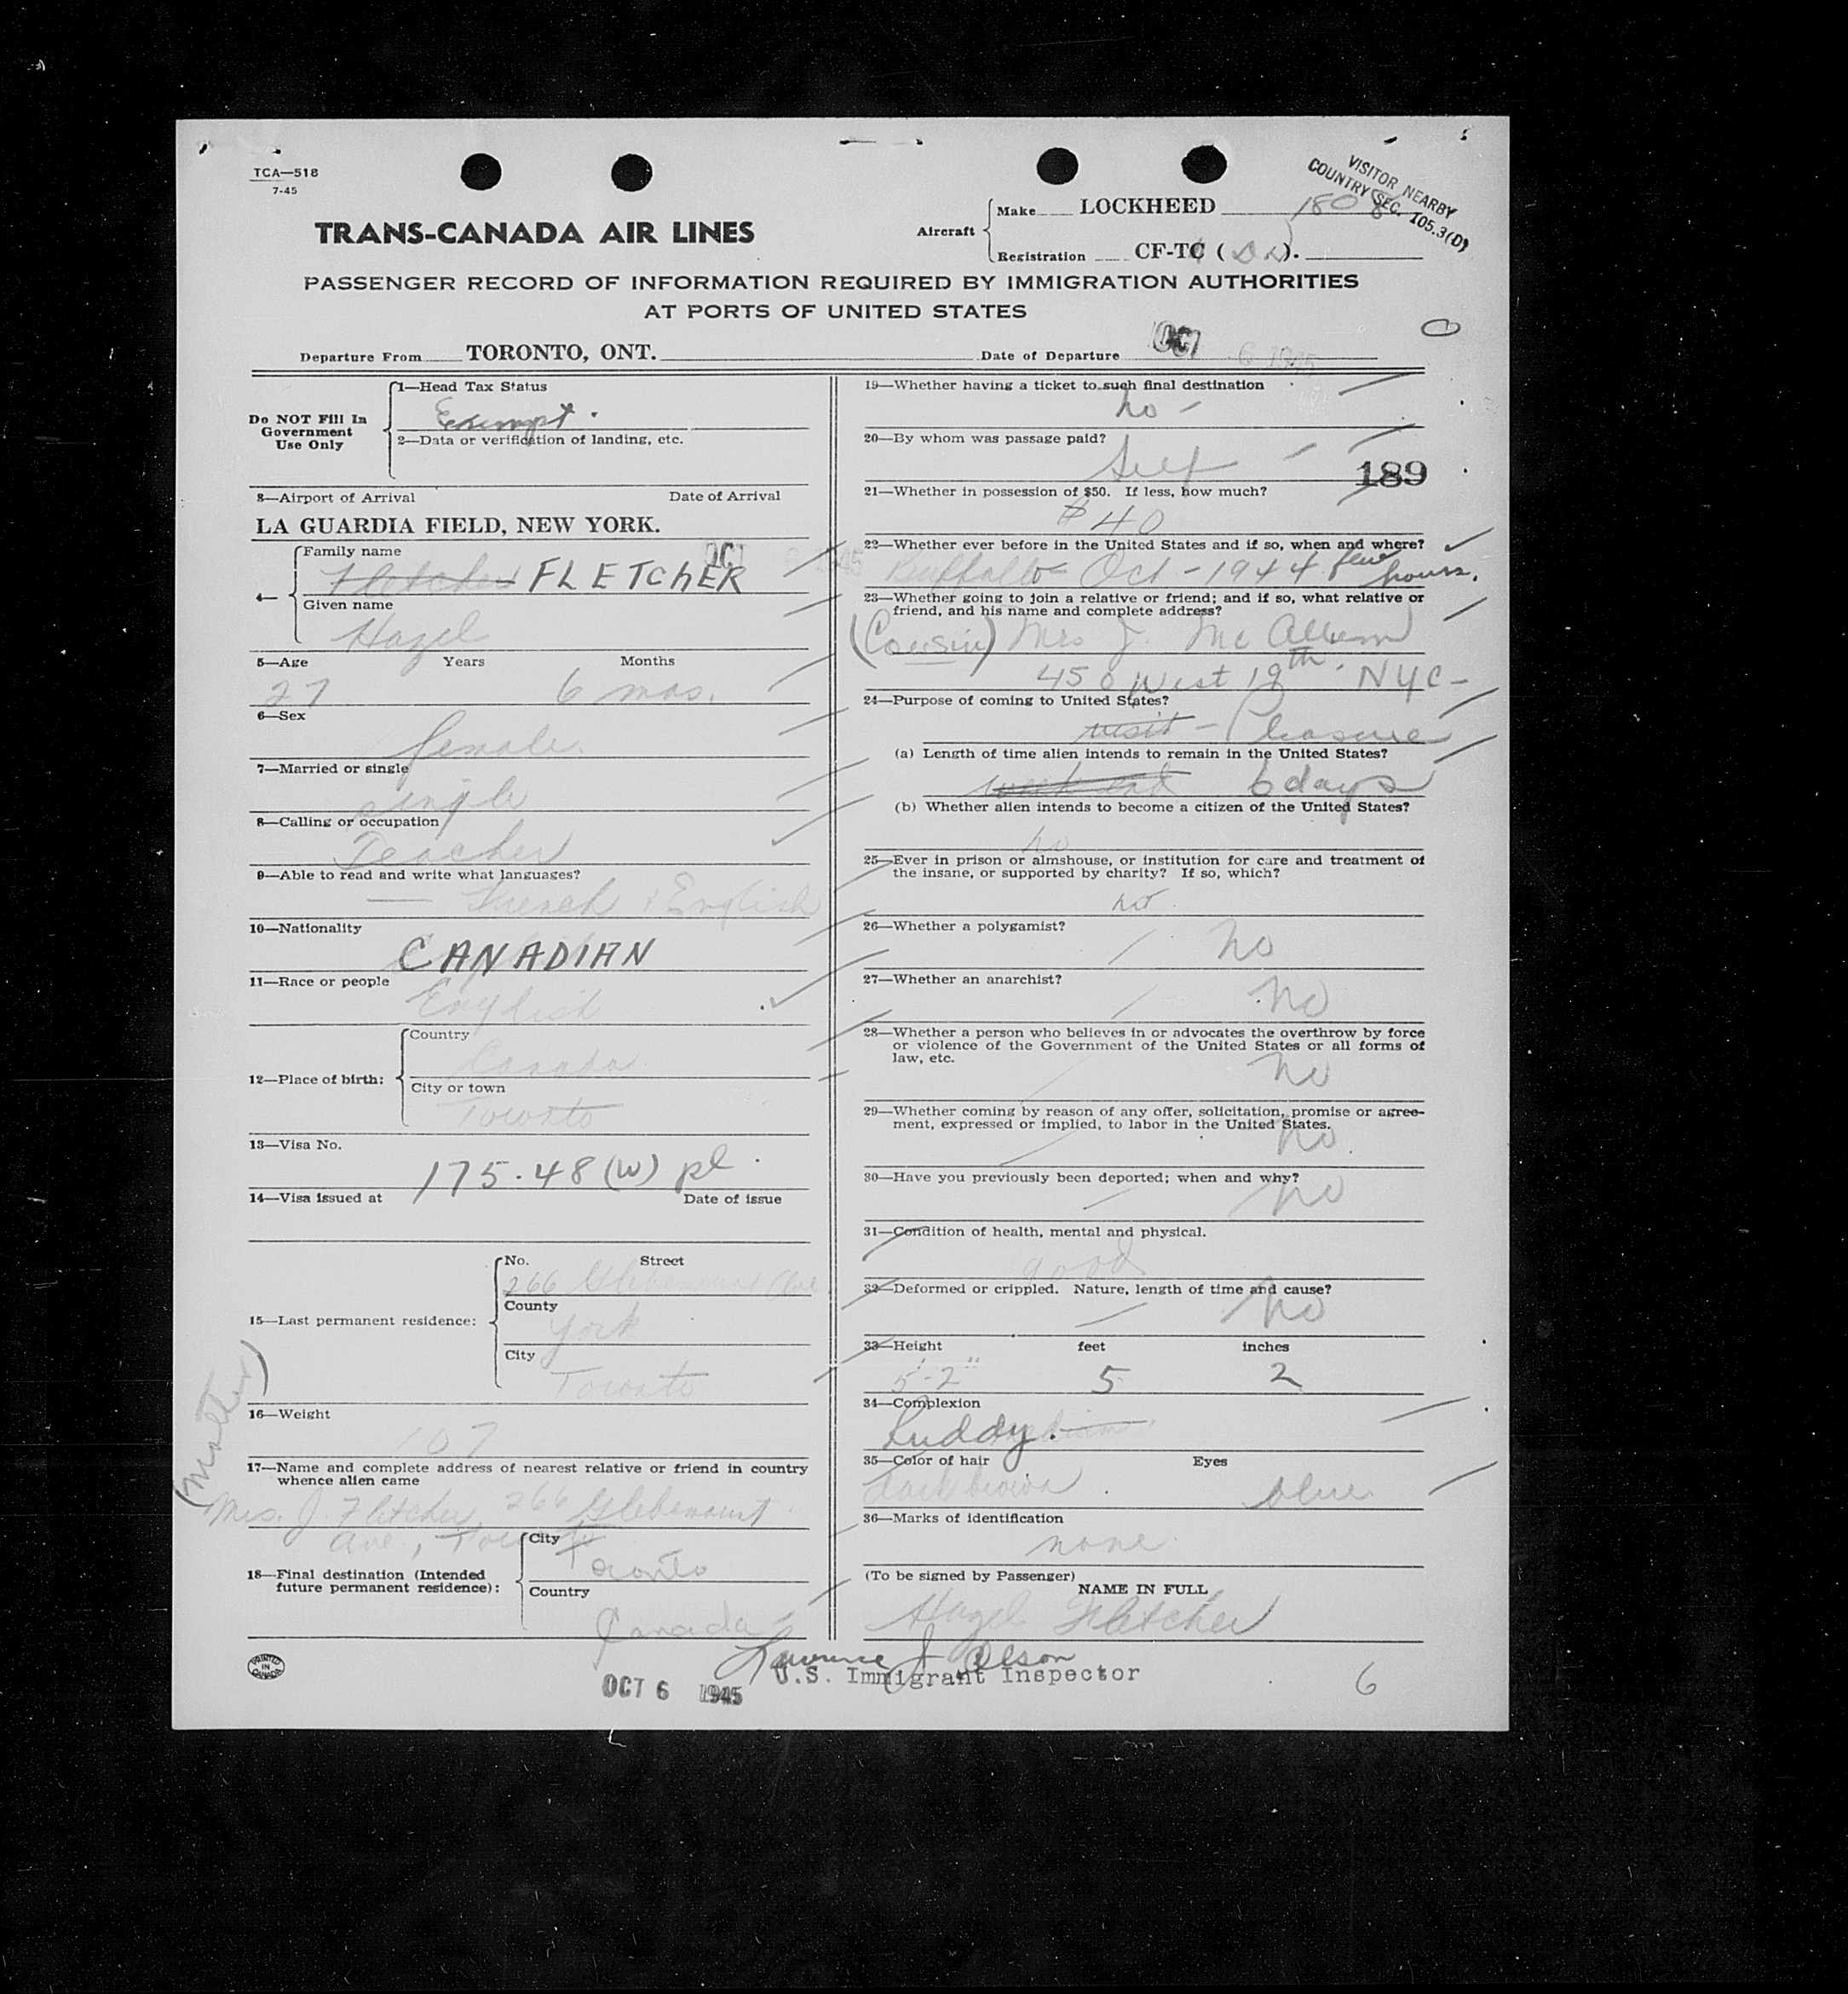 TCA—518
7-45
VISITOR NEARBY
COUNTRY SEC. 105.3(D)
TRANS-CANADA AIR LINES
Aircraft
Make LOCKHEED 1808
Registration CF-TC ( ).
PASSENGER RECORD OF INFORMATION REQUIRED BY IMMIGRATION AUTHORITIES
AT PORTS OF UNITED STATES
Departure From TORONTO, ONT. Date of Departure OCT 6 1945
Do NOT Fill In
Government
Use Only
1—Head Tax Status
Exempt.
2—Data or verification of landing, etc.
3—Airport of Arrival Date of Arrival
LA GUARDIA FIELD, NEW YORK.
OCT 6 1945
Family name
Fletcher FLETCHER
Given name
Hazel
5—Age Years Months
27 6 mos.
6—Sex
female.
7—Married or single
single
8—Calling or occupation
Teacher
9—Able to read and write what languages?
— French & English
10—Nationality
CANADIAN
11—Race or people
English
12—Place of birth:
Country
Canada
City or town
Toronto
13—Visa No.
175.48 (W) pl.
14—Visa issued at Date of issue
15—Last permanent residence:
No. Street
266 Glebemount Ave
County
York
City
Toronto
16—Weight
107
17—Name and complete address of nearest relative or friend in country
whence alien came
(mother)
Mrs. J. Fletcher, 266 Glebemount
Ave.,
18—Final destination (Intended
future permanent residence):
City
Toronto
Country
Canada
19—Whether having a ticket to such final destination
no -
20—By whom was passage paid?
Self
189
21—Whether in possession of $50. If less, how much?
$40
22—Whether ever before in the United States and if so, when and where?
Buffalo - Oct - 1944 few hours.
23—Whether going to join a relative or friend; and if so, what relative or
friend, and his name and complete address?
(Cousin) Mrs J. Mc
450 West 19th. NYC -
24—Purpose of coming to United States?
visit - Pleasure
(a) Length of time alien intends to remain in the United States?
week end 6 days
(b) Whether alien intends to become a citizen of the United States?
no
25—Ever in prison or almshouse, or institution for care and treatment of
the insane, or supported by charity? If so, which?
no.
26—Whether a polygamist?
no
27—Whether an anarchist?
no
28—Whether a person who believes in or advocates the overthrow by force
or violence of the Government of the United States or all forms of
law, etc.
no
29—Whether coming by reason of any offer, solicitation, promise or agree-
ment, expressed or implied, to labor in the United States.
no.
30—Have you previously been deported; when and why?
no
31—Condition of health, mental and physical.
good
32—Deformed or crippled. Nature, length of time and cause?
no
33—Height feet inches
5'-2" 5 2
34—Complexion
Ruddy.
35—Color of hair Eyes
dark brown. blue.
36—Marks of identification
none.
(To be signed by Passenger)
NAME IN FULL
Hazel Fletcher
PRINTED IN CANADA
Lawrence J Olson
U.S. Immigrant Inspector
OCT 6 1945
6